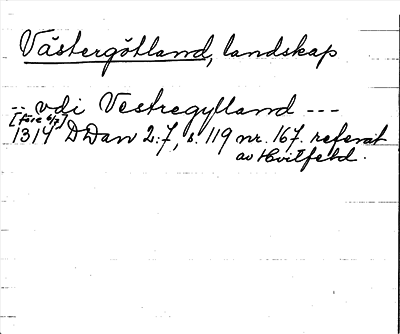 Västergötland, landskap
-- vdi Vestregylland ---
[före 6/7]
1314 DDan 2:7, s. 119 nr. 167. referat
av Hvitfeld.